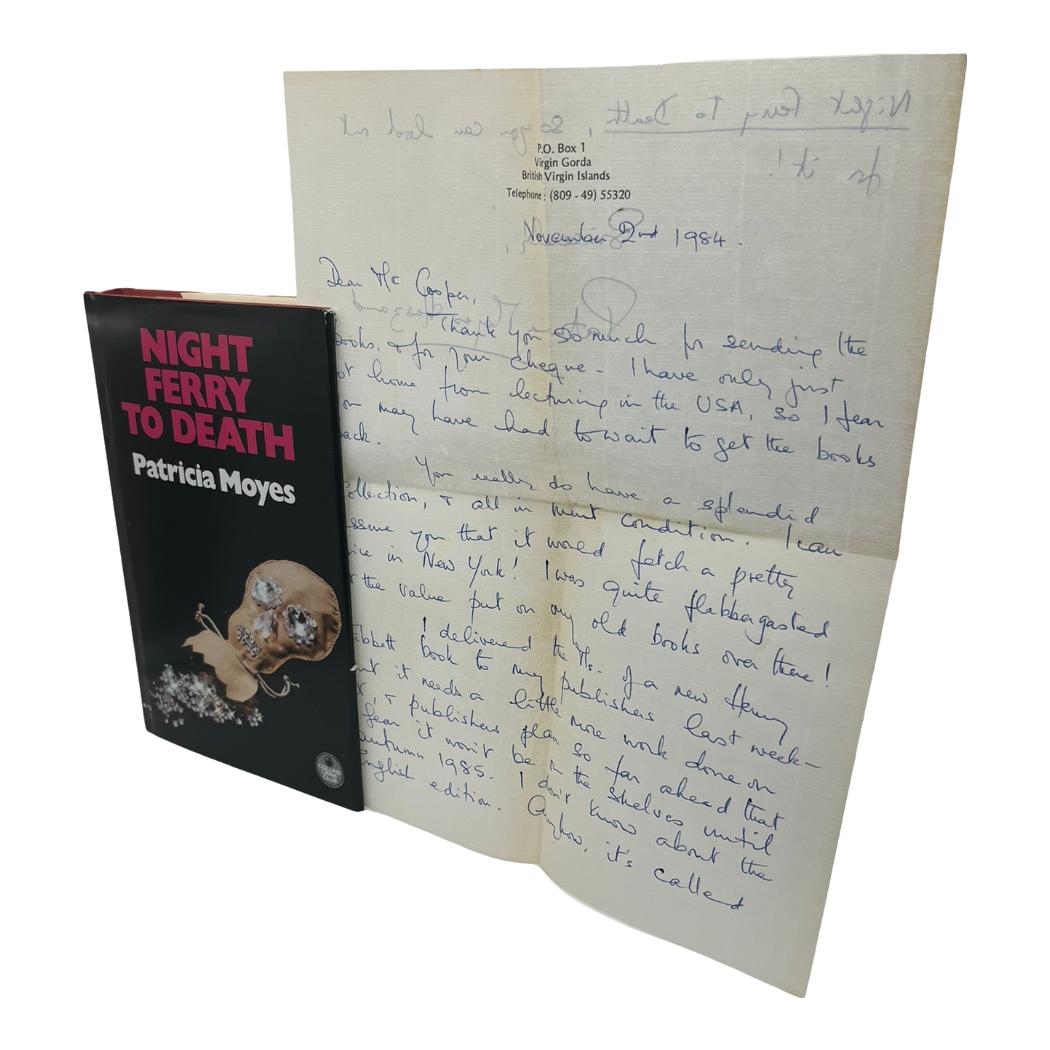 NIGHT
FERRY
TO DEATH
Patricia Moyes
Night Ferry To Death, so you can look out
for it!
P.O. Box 1
Virgin Gorda
British Virgin Islands
Telephone: (809 - 49) 55320
November 2nd 1984.
Dear Mr Cooper,
Thank you so much for sending the
ooks, & for your cheque - I have only just
ot home from lecturing in the USA, so I fear
ou may have had to wait to get the books
ack.
You really do have a splendid
ollection, & all in mint condition. I can
ssure you that it would fetch a pretty
rice in New York! I was quite flabbergasted
the value put on my old books over there!
I delivered the Ms. of a new Henry
ibbett book to my publishers last week -
ut it needs a little more work done on
& publishers plan so far ahead that
fear it won't be on the shelves until
autumn 1985. I don't know about the
English edition. Anyhow, it's called